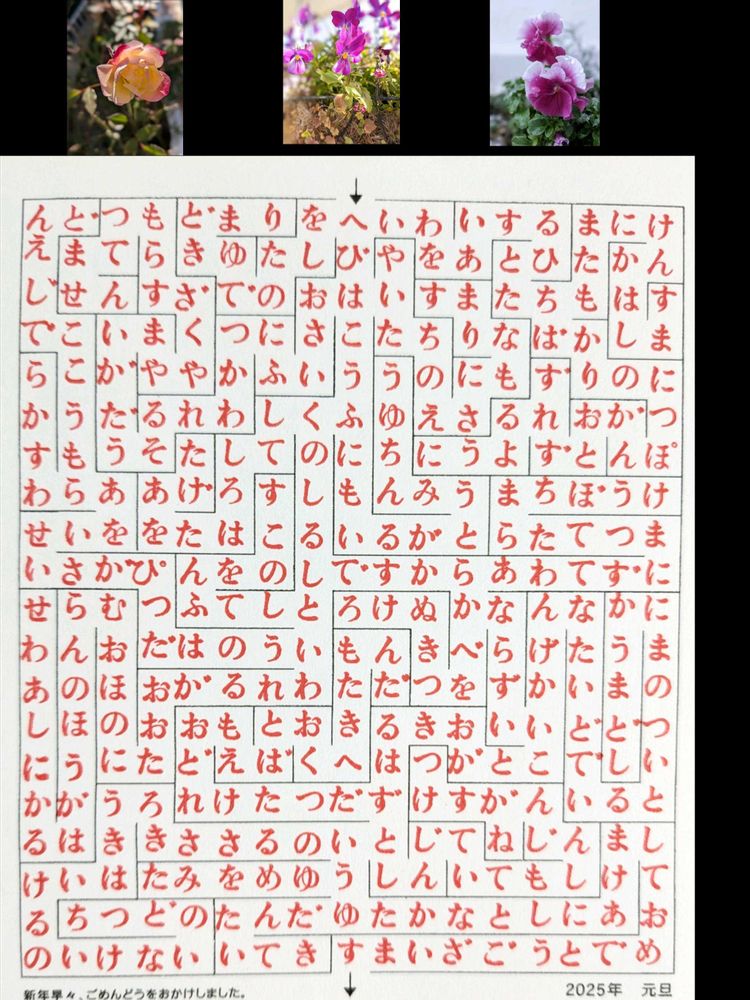 んどつもどまりをへいわいするまにけ
えまてらきゆたしびやをあとひたかん
じせんすざでのおはいすまたちもはす
でこいまくつにさこたちりなばかしま
らこがややかふいううのにもずりのに
かうだるれわしくふゆえさるれおがつ
すもうそたしてのにちにうよずとんぽ
わらああげろすしもんみうまちぼうけ
せいををたはこるいるがとらたてつま
いさかぴんをのしですからあわてずに
せらむつふてしとろけぬかなんなかに
わんおだはのういもんきべらげたうま
あのほおがるれわただつをずかいまの
しほのおおもとおきるきおいいどどつ
にうにたどえばくへはつがとこでしい
かがうろれけたつだずけすがんいると
るはききささるのいとじてねじんまし
けいはたみをめゆうしんいてもしけて
るちつどのたんだゆたかなとしにあお
のいけないいてきすまいざごうとでめ
新年早々、ごめんどうをおかけしました。
2025年 元旦